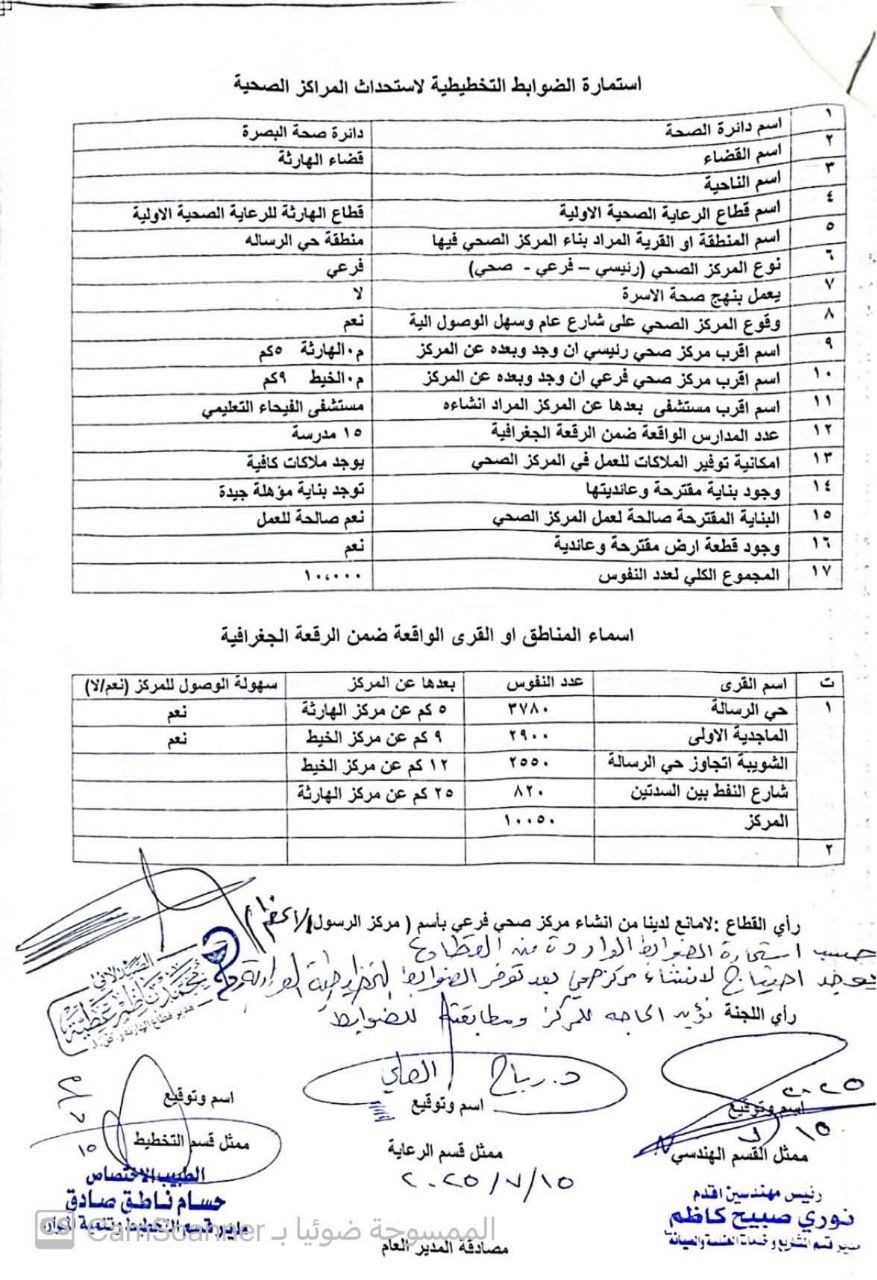 استمارة الضوابط التخطيطية لاستحداث المراكز الصحية
١ اسم دائرة الصحة دائرة صحة البصرة
٢ اسم القضاء قضاء الهارثة
٣ اسم الناحية
٤ اسم قطاع الرعاية الصحية الاولية قطاع الهارثة للرعاية الصحية الاولية
٥ اسم المنطقة او القرية المراد بناء المركز الصحي فيها منطقة حي الرساله
٦ نوع المركز الصحي (رئيسي – فرعي - صحي) فرعي
٧ يعمل بنهج صحة الاسرة لا
٨ وقوع المركز الصحي على شارع عام وسهل الوصول الية نعم
٩ اسم اقرب مركز صحي رئيسي ان وجد وبعده عن المركز م.الهارثة ٥كم
١٠ اسم اقرب مركز صحي فرعي ان وجد وبعده عن المركز م.الخيط ٩كم
١١ اسم اقرب مستشفى بعدها عن المركز المراد انشاءه مستشفى الفيحاء التعليمي
١٢ عدد المدارس الواقعة ضمن الرقعة الجغرافية ١٥ مدرسة
١٣ امكانية توفير الملاكات للعمل في المركز الصحي يوجد ملاكات كافية
١٤ وجود بناية مقترحة وعانديتها توجد بناية مؤهلة جيدة
١٥ البناية المقترحة صالحة لعمل المركز الصحي نعم صالحة للعمل
١٦ وجود قطعة ارض مقترحة وعاندية نعم
١٧ المجموع الكلي لعدد النفوس ١٠,٠٠٠
اسماء المناطق او القرى الواقعة ضمن الرقعة الجغرافية
ت اسم القرى عدد النفوس بعدها عن المركز سهولة الوصول للمركز (نعم/لا)
١ حي الرسالة ٣٧٨٠ ٥ كم عن مركز الهارثة نعم
الماجدية الاولى ٢٩٠٠ ٩ كم عن مركز الخيط نعم
الشويبة اتجاوز حي الرسالة ٢٥٥٠ ١٢ كم عن مركز الخيط
شارع النفط بين السدتين ٨٢٠ ٢٥ كم عن مركز الهارثة
المركز ١٠٠٥٠
٢
رأي القطاع :لامانع لدينا من انشاء مركز صحي فرعي بأسم ( مركز الرسول
حسب استمارة الضوابط الواردة من القطاع
يوجد احتياج لانشاء مركز صحي بعد توفر الضوابط التخطيطية
رأي اللجنة نؤيد الحاجه للمركز ومطابقته للضوابط
الصيدلاني
محمد ناظم عطية
مدير قطاع الهارثة
د. رباح
اسم وتوقيع
ممثل القسم الهندسي
اسم وتوقيع
ممثل قسم الرعاية
٢٠٢٥/٧/١٥
اسم وتوقيع
ممثل قسم التخطيط
٧
١٥
٢٠٢٥
٧
١٥
رئيس مهندسين اقدم
نوري صبيح كاظم
مدير قسم المشاريع وخدمات الهندسة والصيانة
الطبيب الاختصاص
حسام ناطق صادق
مدير قسم التخطيط وتنمية الموارد
مصادقة المدير العام
CS الممسوحة ضوئيا بـ CamScanner